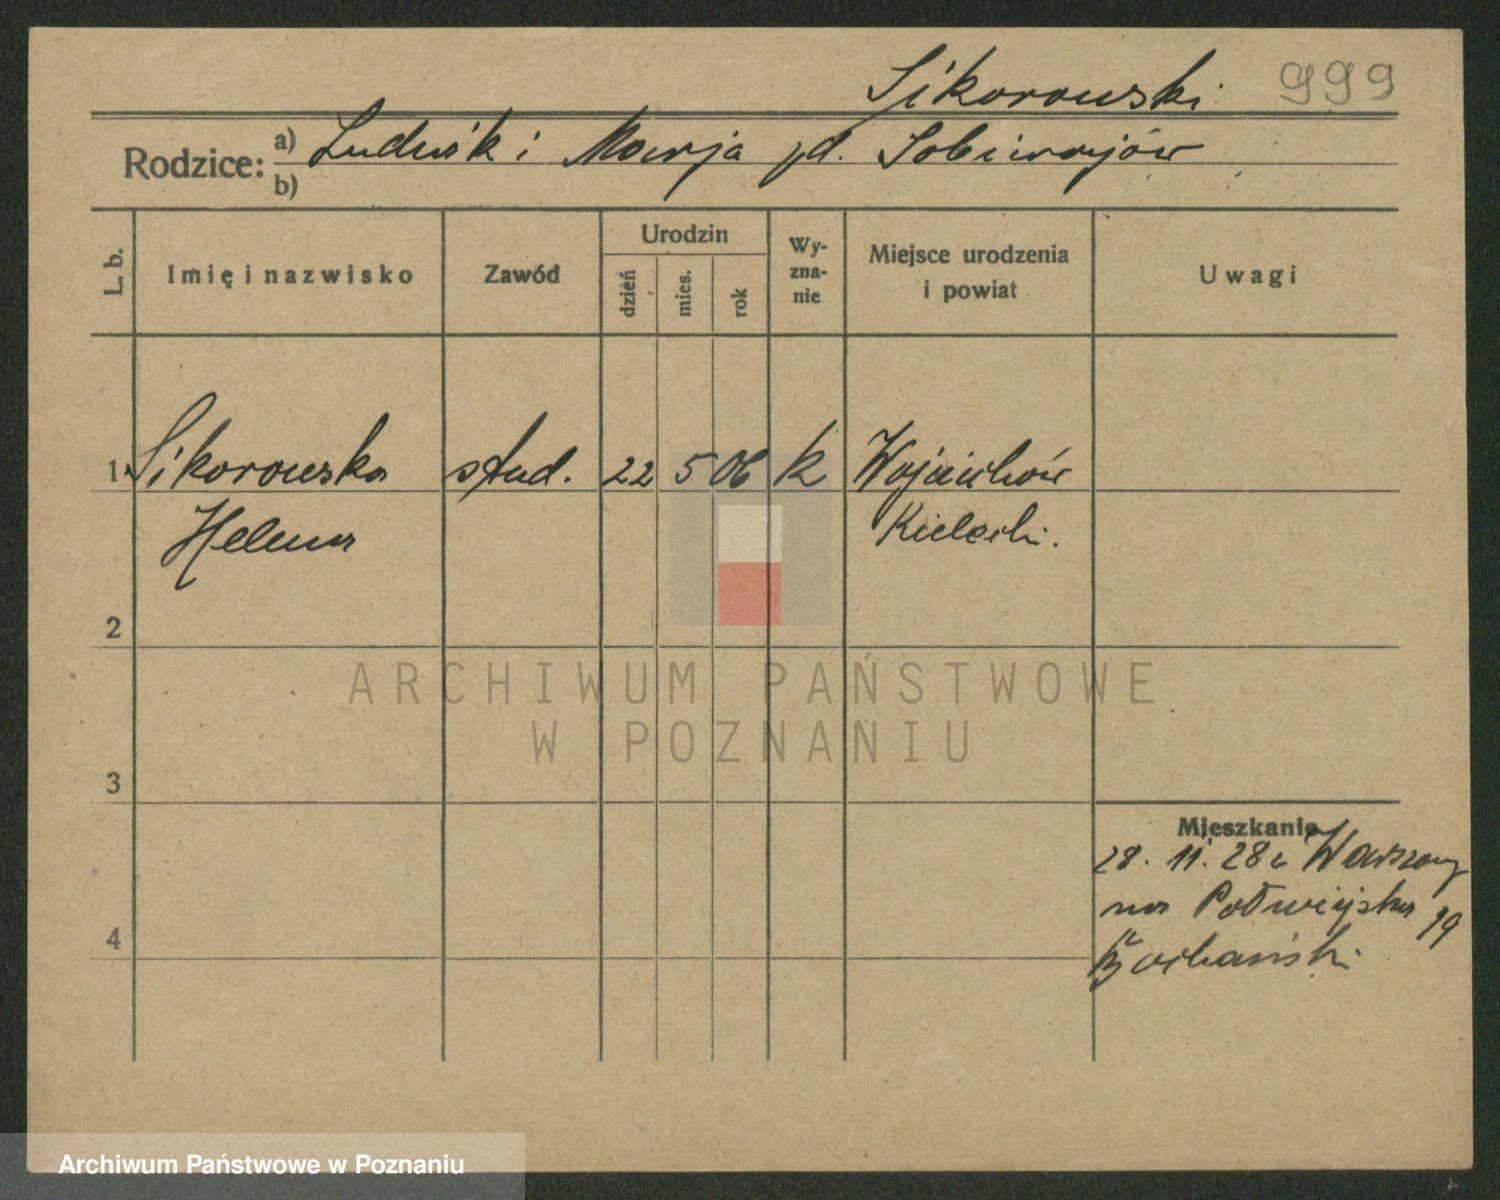 Sikorowski 999
Rodzice: a) Ludwik i Marja zd. Sobierajów
b)
L. b. Imię i nazwisko Zawód Urodzin dzień mies. rok Wyzna-nie Miejsce urodzenia i powiat Uwagi
1. Sikorowska stud. 22 5 06 k Wojciechów
Helena Kielecki.
2
3
Mieszkanie
28. 11. 28 z Warszawy
na Półwiejska 19
4
Bochański
ARCHIWUM PAŃSTWOWE
W POZNANIU
Archiwum Państwowe w Poznaniu